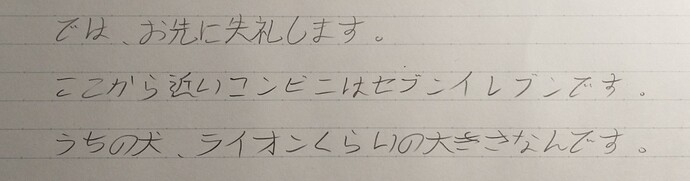 では、お先に失礼します。
ここから近いコンビニはセブンイレブンです。
うちの犬、ライオンくらいの大きさなんです。